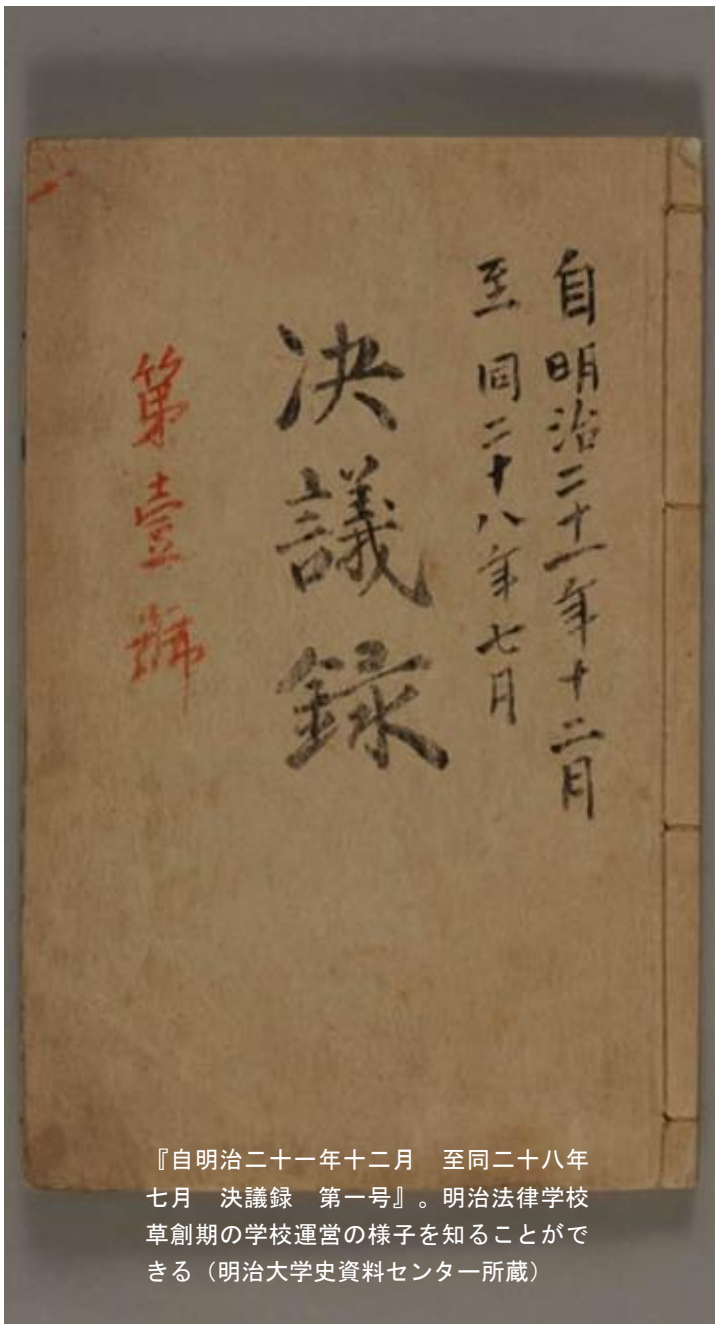 自明治二十一年十二月
至同二十八年七月
決議録
第壹號
『自明治二十一年十二月　至同二十八年
七月　決議録　第一号』。明治法律学校
草創期の学校運営の様子を知ることがで
きる（明治大学史資料センター所蔵）